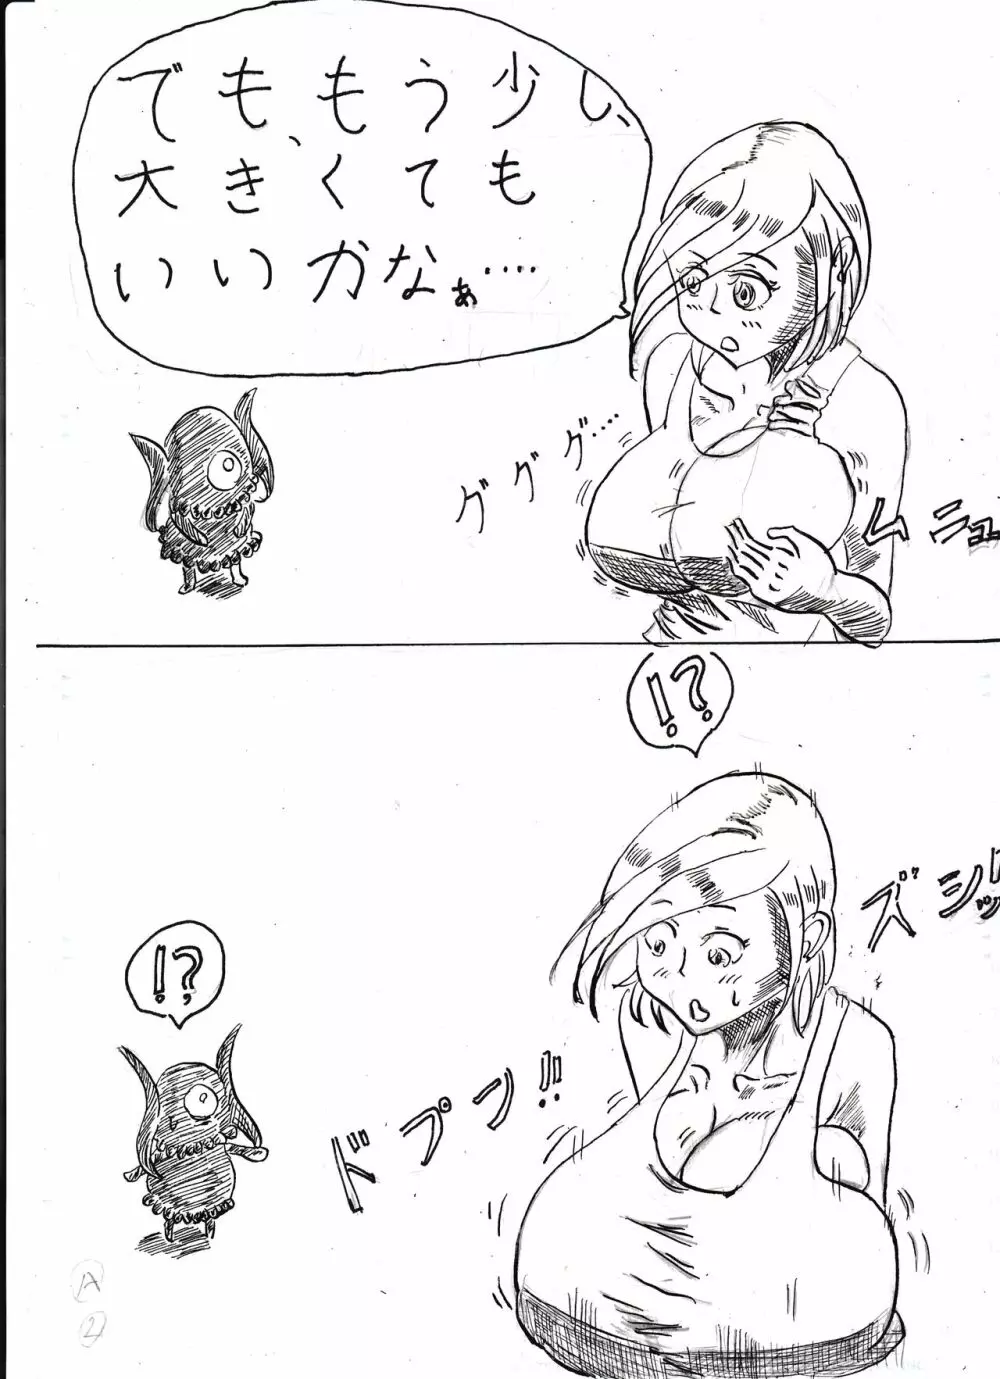 でも、もう少し、
大きくても
いいかなぁ‥‥
グググ‥‥
ムニュ
!?
ズシッ
!?
ドプン!!
A
2